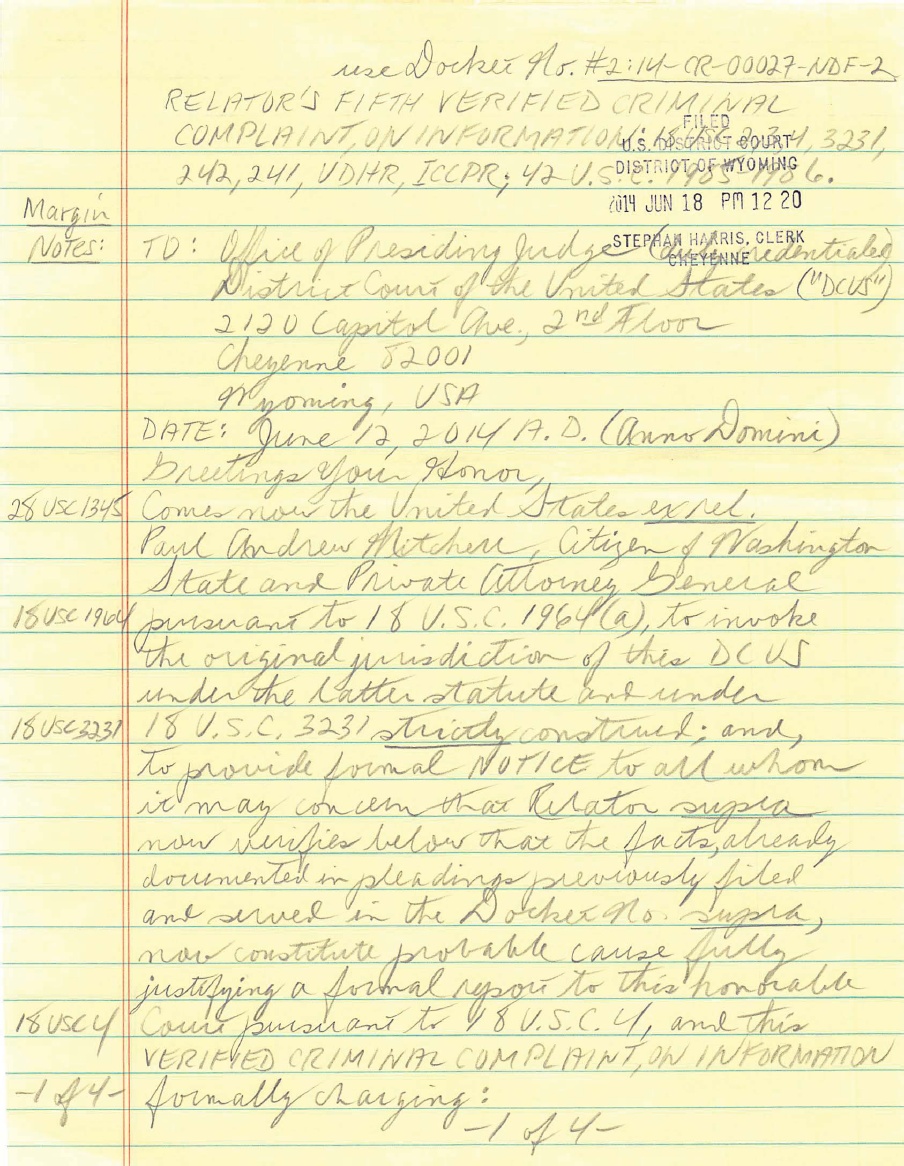 use Docket No. #2:14-CR-00027-NDF-2
RELATOR'S FIFTH VERIFIED CRIMINAL
COMPLAINT, ON INFORMATION: 18 USC 2, 3, 4, 3231,
242, 241, UDHR, ICCPR; 42 U.S.C. 1985-1986.
FILED
U.S. DISTRICT COURT
DISTRICT OF WYOMING
2014 JUN 18 PM 12 20
STEPHAN HARRIS, CLERK
CHEYENNE
Margin
Notes:
TO: Office of Presiding Judge (duly credentialed)
District Court of the United States ("DCUS")
2120 Capitol Ave., 2nd Floor
Cheyenne 82001
Wyoming, USA
DATE: June 12, 2014 A.D. (Anno Domini)
Greetings Your Honor,
28 USC 1345 Comes now the United States ex rel.
Paul Andrew Mitchell, Citizen of Washington
State and Private Attorney General
18 USC 1964 pursuant to 18 U.S.C. 1964(a), to invoke
the original jurisdiction of this DCUS
under the latter statute and under
18 USC 3231 18 U.S.C. 3231 strictly construed; and,
to provide formal NOTICE to all whom
it may concern that Relator supra
now verifies below that the facts, already
documented in pleadings previously filed
and served in the Docket No. supra,
now constitute probable cause fully
justifying a formal report to this honorable
18 USC 4 Court pursuant to 18 U.S.C. 4, and this
VERIFIED CRIMINAL COMPLAINT, ON INFORMATION
-1 of 4- formally charging:
-1 of 4-